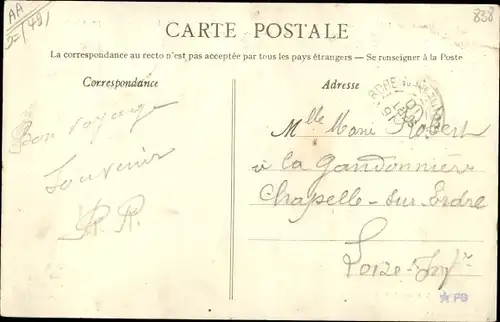 AA
838
CARTE POSTALE
La correspondance au recto n'est pas acceptée par tous les pays étrangers — Se renseigner à la Poste
Correspondance
Adresse
Bon voyage
Souvenir
Mlle Marie Robert
à la Gandonnière
Chapelle-sur-Erdre
Loire-Infre
PB